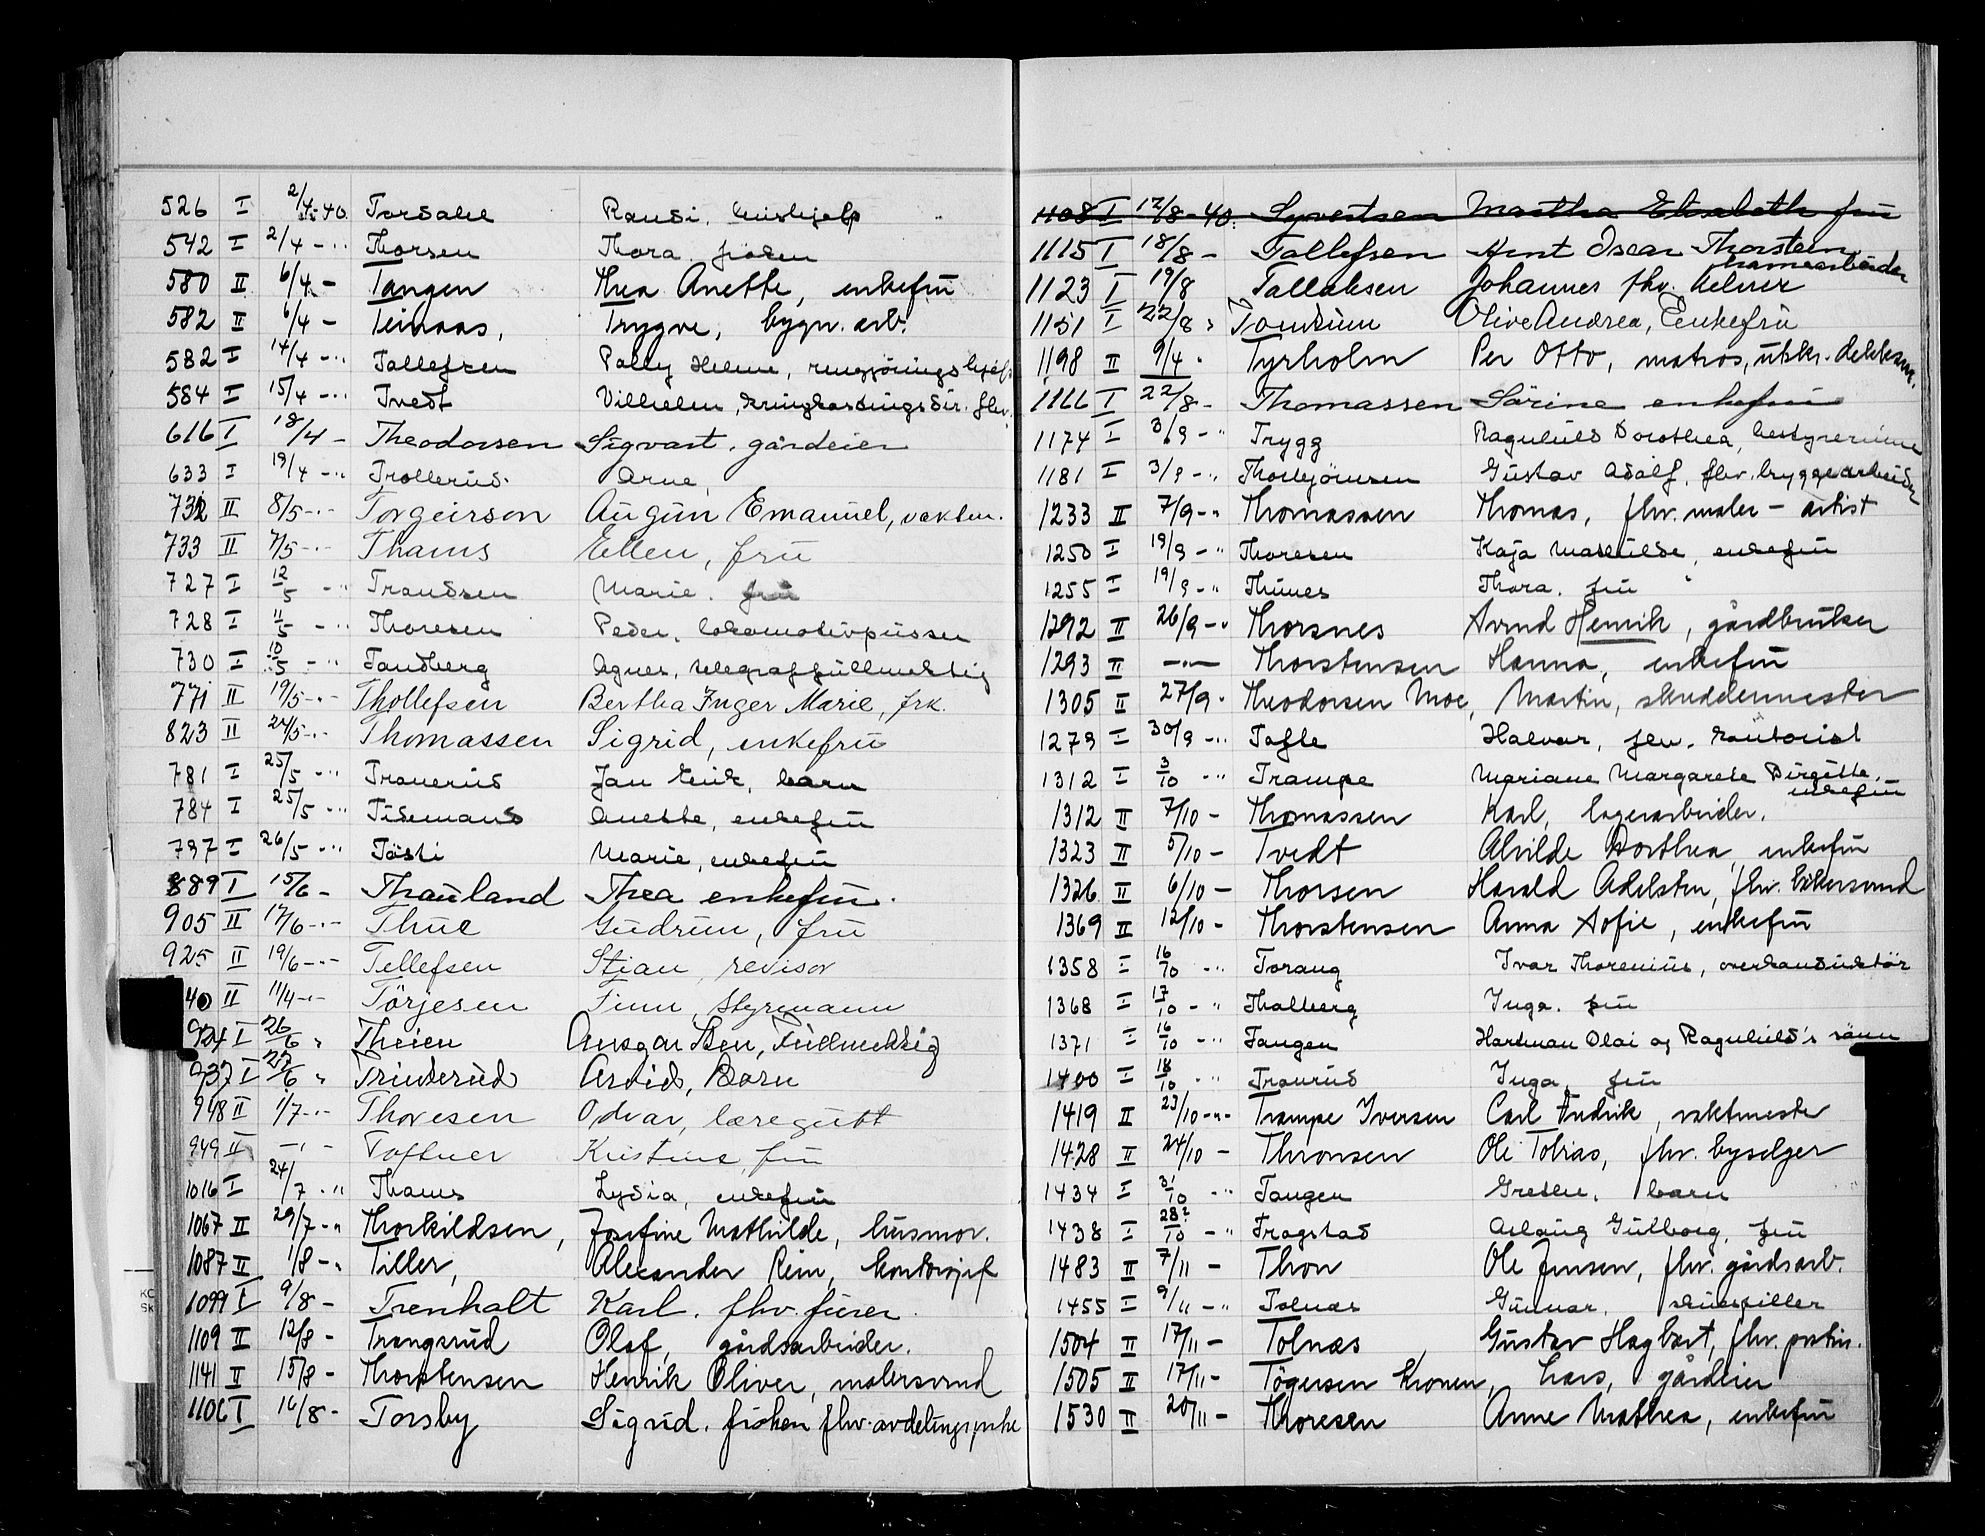 526 I 2/4-40 Tordahl Randi, hushjelp
542 I 2/4 - " Thorsen Thora frøken
580 II 6/4 - Tangen Thea Anette, enkefrü
582 II 6/4 - Teinaas, Trygve, bygn. arb.
582 I 14/4 - " Tallefsen Pally Helene, rengjøringshjelp
584 I 15/4 - " Tvedt Vilhelm, kringkastingsdir. fhv.
616 I 18/4 - Theodorsen Sigvart. gårdeier
633 I 19/4 - " Trollerud. Arne,
732 II 8/5 - " Torgeirson Augün Emanuel, vaktm.
733 II 7/5 - " Thams Ellen, frü
727 I 12/5 - " Trandsen Marie. frü
728 I 11/5 - " Thoresen Peder, lokomotivpusser
730 I 10/5 - " Tandberg Agnes, telegraffullmektig
771 II 19/5 - " Thollefsen Bertha Inger Marie, frk.
823 II 24/5 - " Thomassen Sigrid, enkefrü
781 I 25/5 - " Tranerud Jan Erik, barn
784 I 25/5 - " Tidemand Anette, enkefrü
797 I 26/5 - " Tösti Marie, enkefrü
889 I 15/6 - Thaüland Thea enkefrü.
905 II 17/6 - " Thue Güdrün, frü
925 II 19/6 - " Tellefsen Stian, revisor
40 II 11/4 - " Törjesen Finn, styrmann
924 I 26/6 " Theien Ansgar Sten, Füllmektig
937 I 27/6 " Trinterud Arvid, Barn
948 II 1/7 - " Thoresen Odvar, læregutt
949 II - " - Toftner Kristine, frü
1016 I 24/7 - " Thams Lydia, enkefrü
1067 II 29/7 - " Thorkildsen, Josefine Mathilde, hüsmor.
1087 II 1/8 - " Tiller, Alexander Rein, kontorsjef
1099 I 9/8 - Trenhalt Karl. fhv. fürer.
1109 II 12/8 - Trangsrud Olaf, gårdsarbeider.
1141 II 15/8 - Thorstensen Henrik Oliver, malersvend
1106 I 16/8 - Torsby Sigrid. frøken fhv. avdelings
1108 I 12/8-40. Syvertsen Martha Elisabeth frü
1115 I 18/8 - Tallefsen Arnt Oscar Thorstein
1123 I 19/8 Tallaksen Johannes fhv. kelner
1151 I 22/8 " Tandsün Olive Andrea, Enkefrü
1198 II 9/4 " Tyrholm Per Otto, matros, ükkr. dekksm.
1166 I 22/8 - Thomassen Sörine enkefrü
1174 I 3/9 - " Trygg Ragnhild Dorothea, bestyrerinne
1181 I 3/9 - " Thorbjörnsen Gustav Adolf. fhv. bryggearbeider
1233 II 7/9 - " Thomassen Thomas, fhv. maler - artist
1250 I 19/9 - " Thoresen Kaja Mathilde, enkefrü
1255 I 19/9 - " Thünes Thora. frü
1292 II 26/9 - " Thorsnes Arvid Henrik, gårdbrüker
1293 II - " - Thorstensen Hanna, enkefrü
1305 II 27/9 " Theodorsen Moe, Martin, skreddermester
1279 I 30/9 - " Tafle Halvar, fhv.
1312 I 3/10 - " Trampe Mariane Margarete Birgitte.
enkefrü
1312 II 7/10 - Thomassen Karl, lagerarbeider.
1323 II 5/10 - Tvedt Alvilde Dorthea, enkefrü
1326 II 6/10 - Thorsen Harald Adelsten, fhv. bakersvend
1369 II 12/10 - Thorstensen Anna Sofie, enkefrü
1358 I 16/10 - " Torang Ivar Thorenius, overkonduktör
1368 I 17/10 - " Thalberg Inga. frü
1371 I 16/10 - " Tangen Hartman Olai og Ragnhild's sönn
1400 I 18/10 - " Traurud Inga, frü
1419 II 23/10 - " Trampe Iversen Carl Fredrik, vaktmester
1428 II 24/10 - Thronsen Ole Tobias, fhv. byselger
1434 I 31/10 - " Tangen Grethe, barn
1438 I 28?/10 - " Tragstad Aslaug Gulborg, frü
1483 II 7/11 - Thron Ole Jensen, fhv. gårdsarb.
1455 I 9/11 - " Tolnæs Günnar,
1504 II 17/11 - Tolnæs Gustav Hagbart, fhv.
1505 II 17/11 - Tögersen Kronen, Lars, gårdeier
1530 II 20/11 - Thoresen Anne Mathea, enkefrü